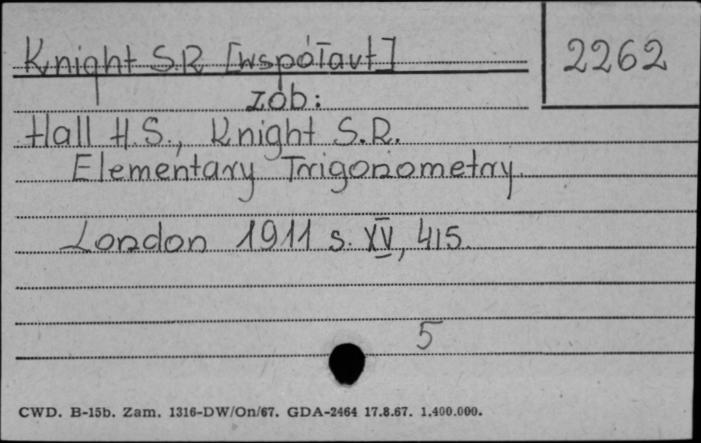 Knight S.R [współaut]
2262
zob:
Hall H.S., Knight S.R.
Elementary Trigonometry
London 1911 s. XV, 415.
5
CWD. B-15b. Zam. 1316-DW/On/67. GDA-2464 17.8.67. 1.400.000.